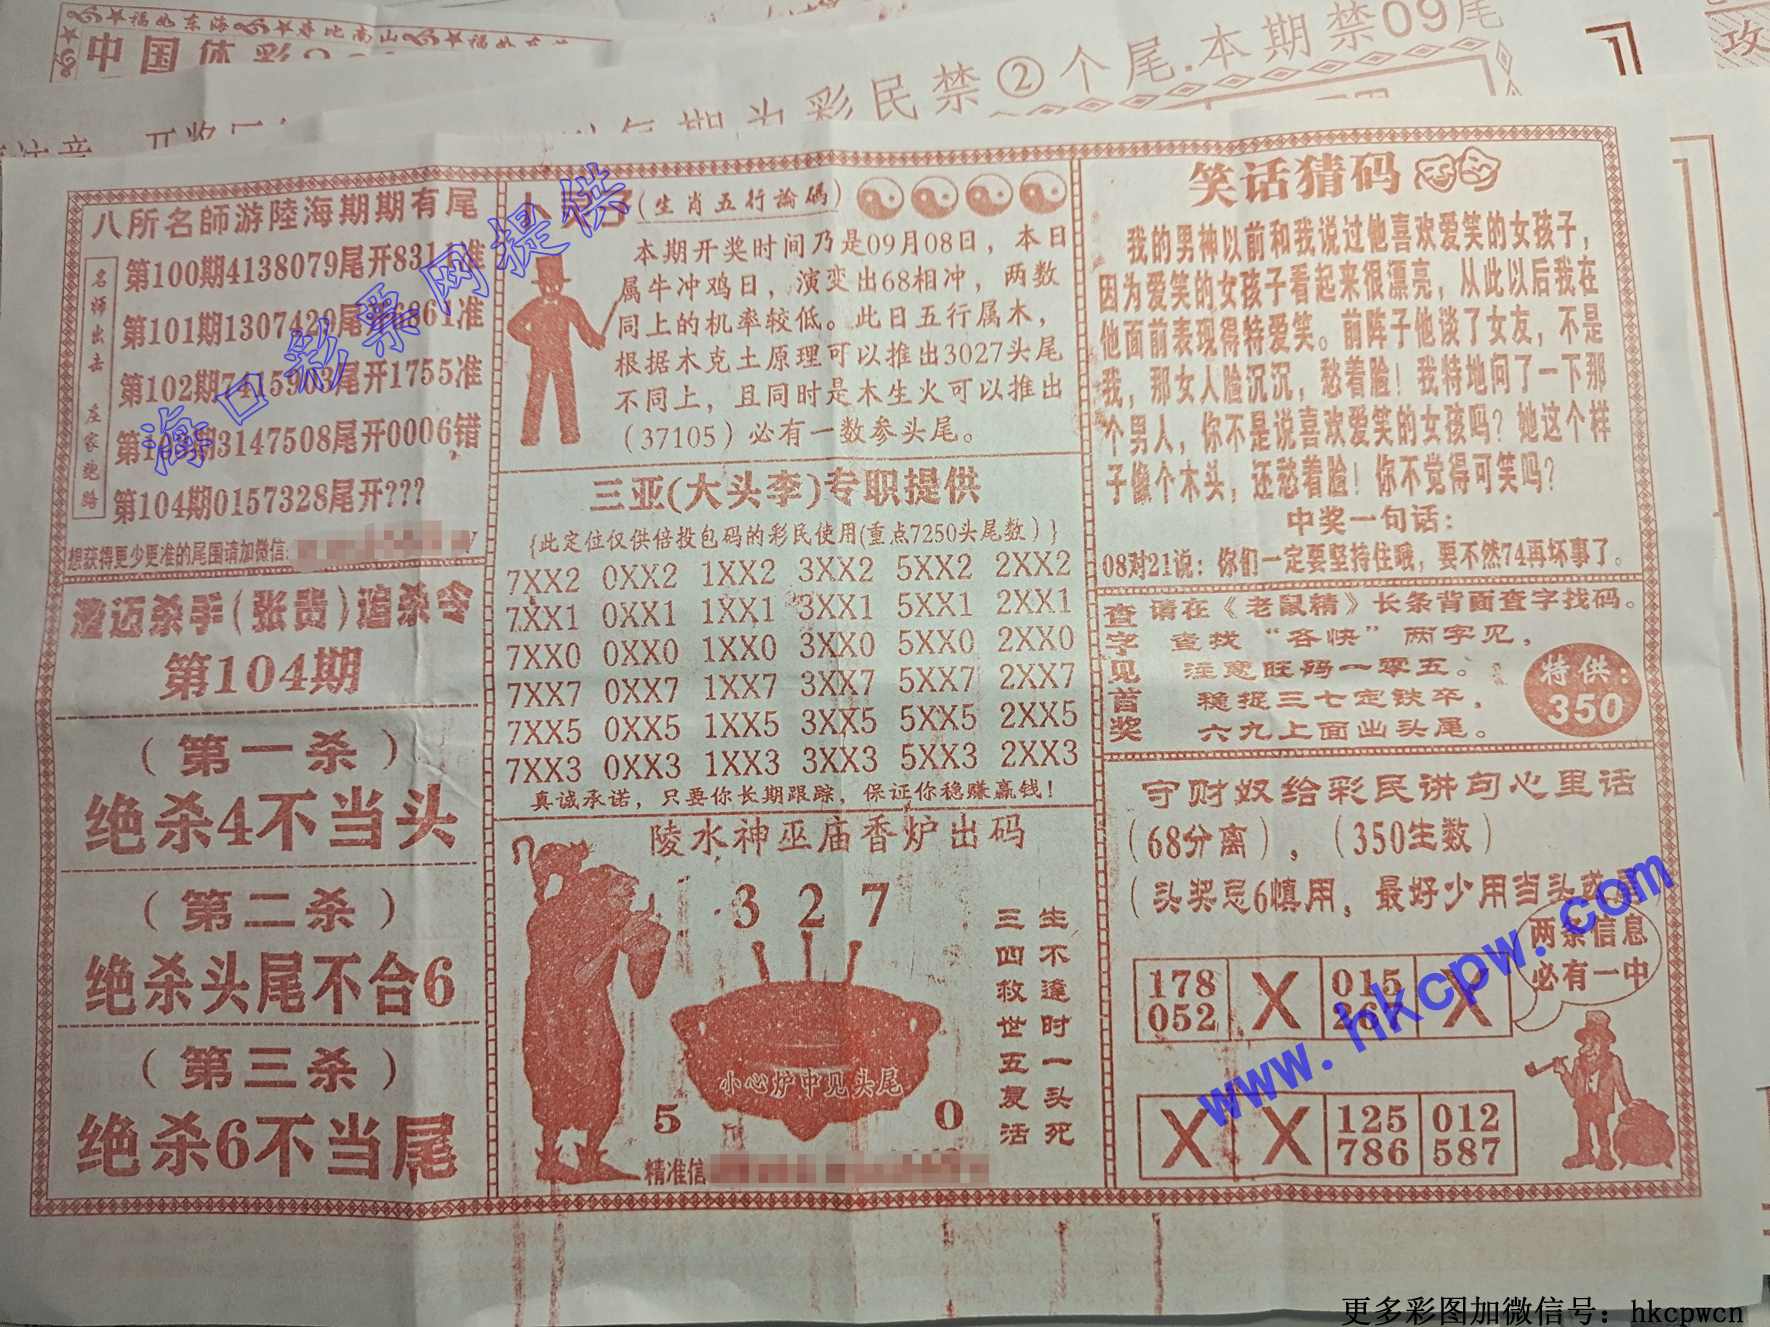 福如东海
寿比南山
福如
中国体彩
彩民禁②个尾.本期禁09尾
攻
八所名師游陸海期期有尾
名师出击 庄家绝路
第100期4138079尾开831准
第101期1307420尾开 61准
第102期741590 尾开1755准
第103期3147508尾开0006错
第104期0157328尾开???
想获得更少更准的尾国请加微信:
澄迈杀手(张贵)追杀令
第104期
(第一杀)
绝杀4不当头
(第二杀)
绝杀头尾不合6
(第三杀)
绝杀6不当尾
(生肖五行論碼)
本期开奖时间乃是09月08日，本日
属牛冲鸡日，演变出68相冲，两数
同上的机率较低。此日五行属木，
根据木克土原理可以推出3027头尾
不同上，且同时是木生火可以推出
(37105)必有一数参头尾。
三亚(大头李)专职提供
{此定位仅供倍投包码的彩民使用(重点7250头尾数)}
7XX2 0XX2 1XX2 3XX2 5XX2 2XX2
7XX1 0XX1 1XX1 3XX1 5XX1 2XX1
7XX0 0XX0 1XX0 3XX0 5XX0 2XX0
7XX7 0XX7 1XX7 3XX7 5XX7 2XX7
7XX5 0XX5 1XX5 3XX5 5XX5 2XX5
7XX3 0XX3 1XX3 3XX3 5XX3 2XX3
真诚承诺，只要你长期跟踪，保证你稳赚赢钱!
陵水神巫庙香炉出码
3 2 7
小心炉中见头尾
5 0
生不逢时一头死
三四救世五复活
精准信
笑话猜码
我的男神以前和我说过他喜欢爱笑的女孩子，
因为爱笑的女孩子看起来很漂亮，从此以后我在
他面前表现得特爱笑。前阵子他谈了女友，不是
我，那女人脸沉沉，愁着脸！我特地问了一下那
个男人，你不是说喜欢爱笑的女孩吗？她这个样
子像个木头，还愁着脸！你不觉得可笑吗？
中奖一句话：
08对21说：你们一定要坚持住哦，要不然74再坏事了。
查字见首奖
请在《老鼠精》长条背面查字找码。
查找“各快”两字见，
注意旺码一零五。
稳捉三七定铁卒，
六九上面出头尾。
特供：
350
守财奴给彩民讲句心里话
(68分离)，(350生数)
(头奖忌6慎用，最好少用当头或尾)
两条信息
必有一中
178 X 015 X
052 267
X X 125 012
786 587
海口彩票网提供
www.hkcpw.com
更多彩图加微信号：hkcpwcn